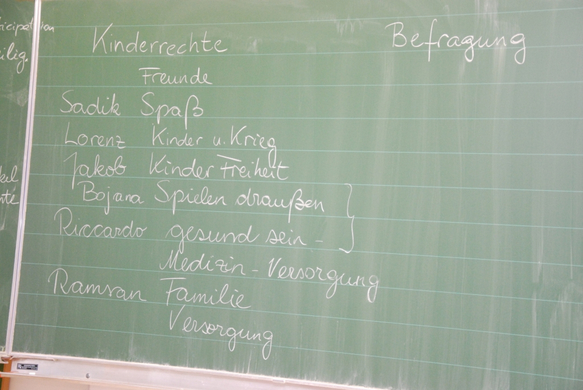 Kinderrechte
Befragung
Freunde
Sadik Spaß
Lorenz Kinder u. Krieg
Jakob Kinder Freiheit
Bojana Spielen draußen
Riccardo gesund sein -
Medizin - Versorgung
Ramsan Familie
Versorgung